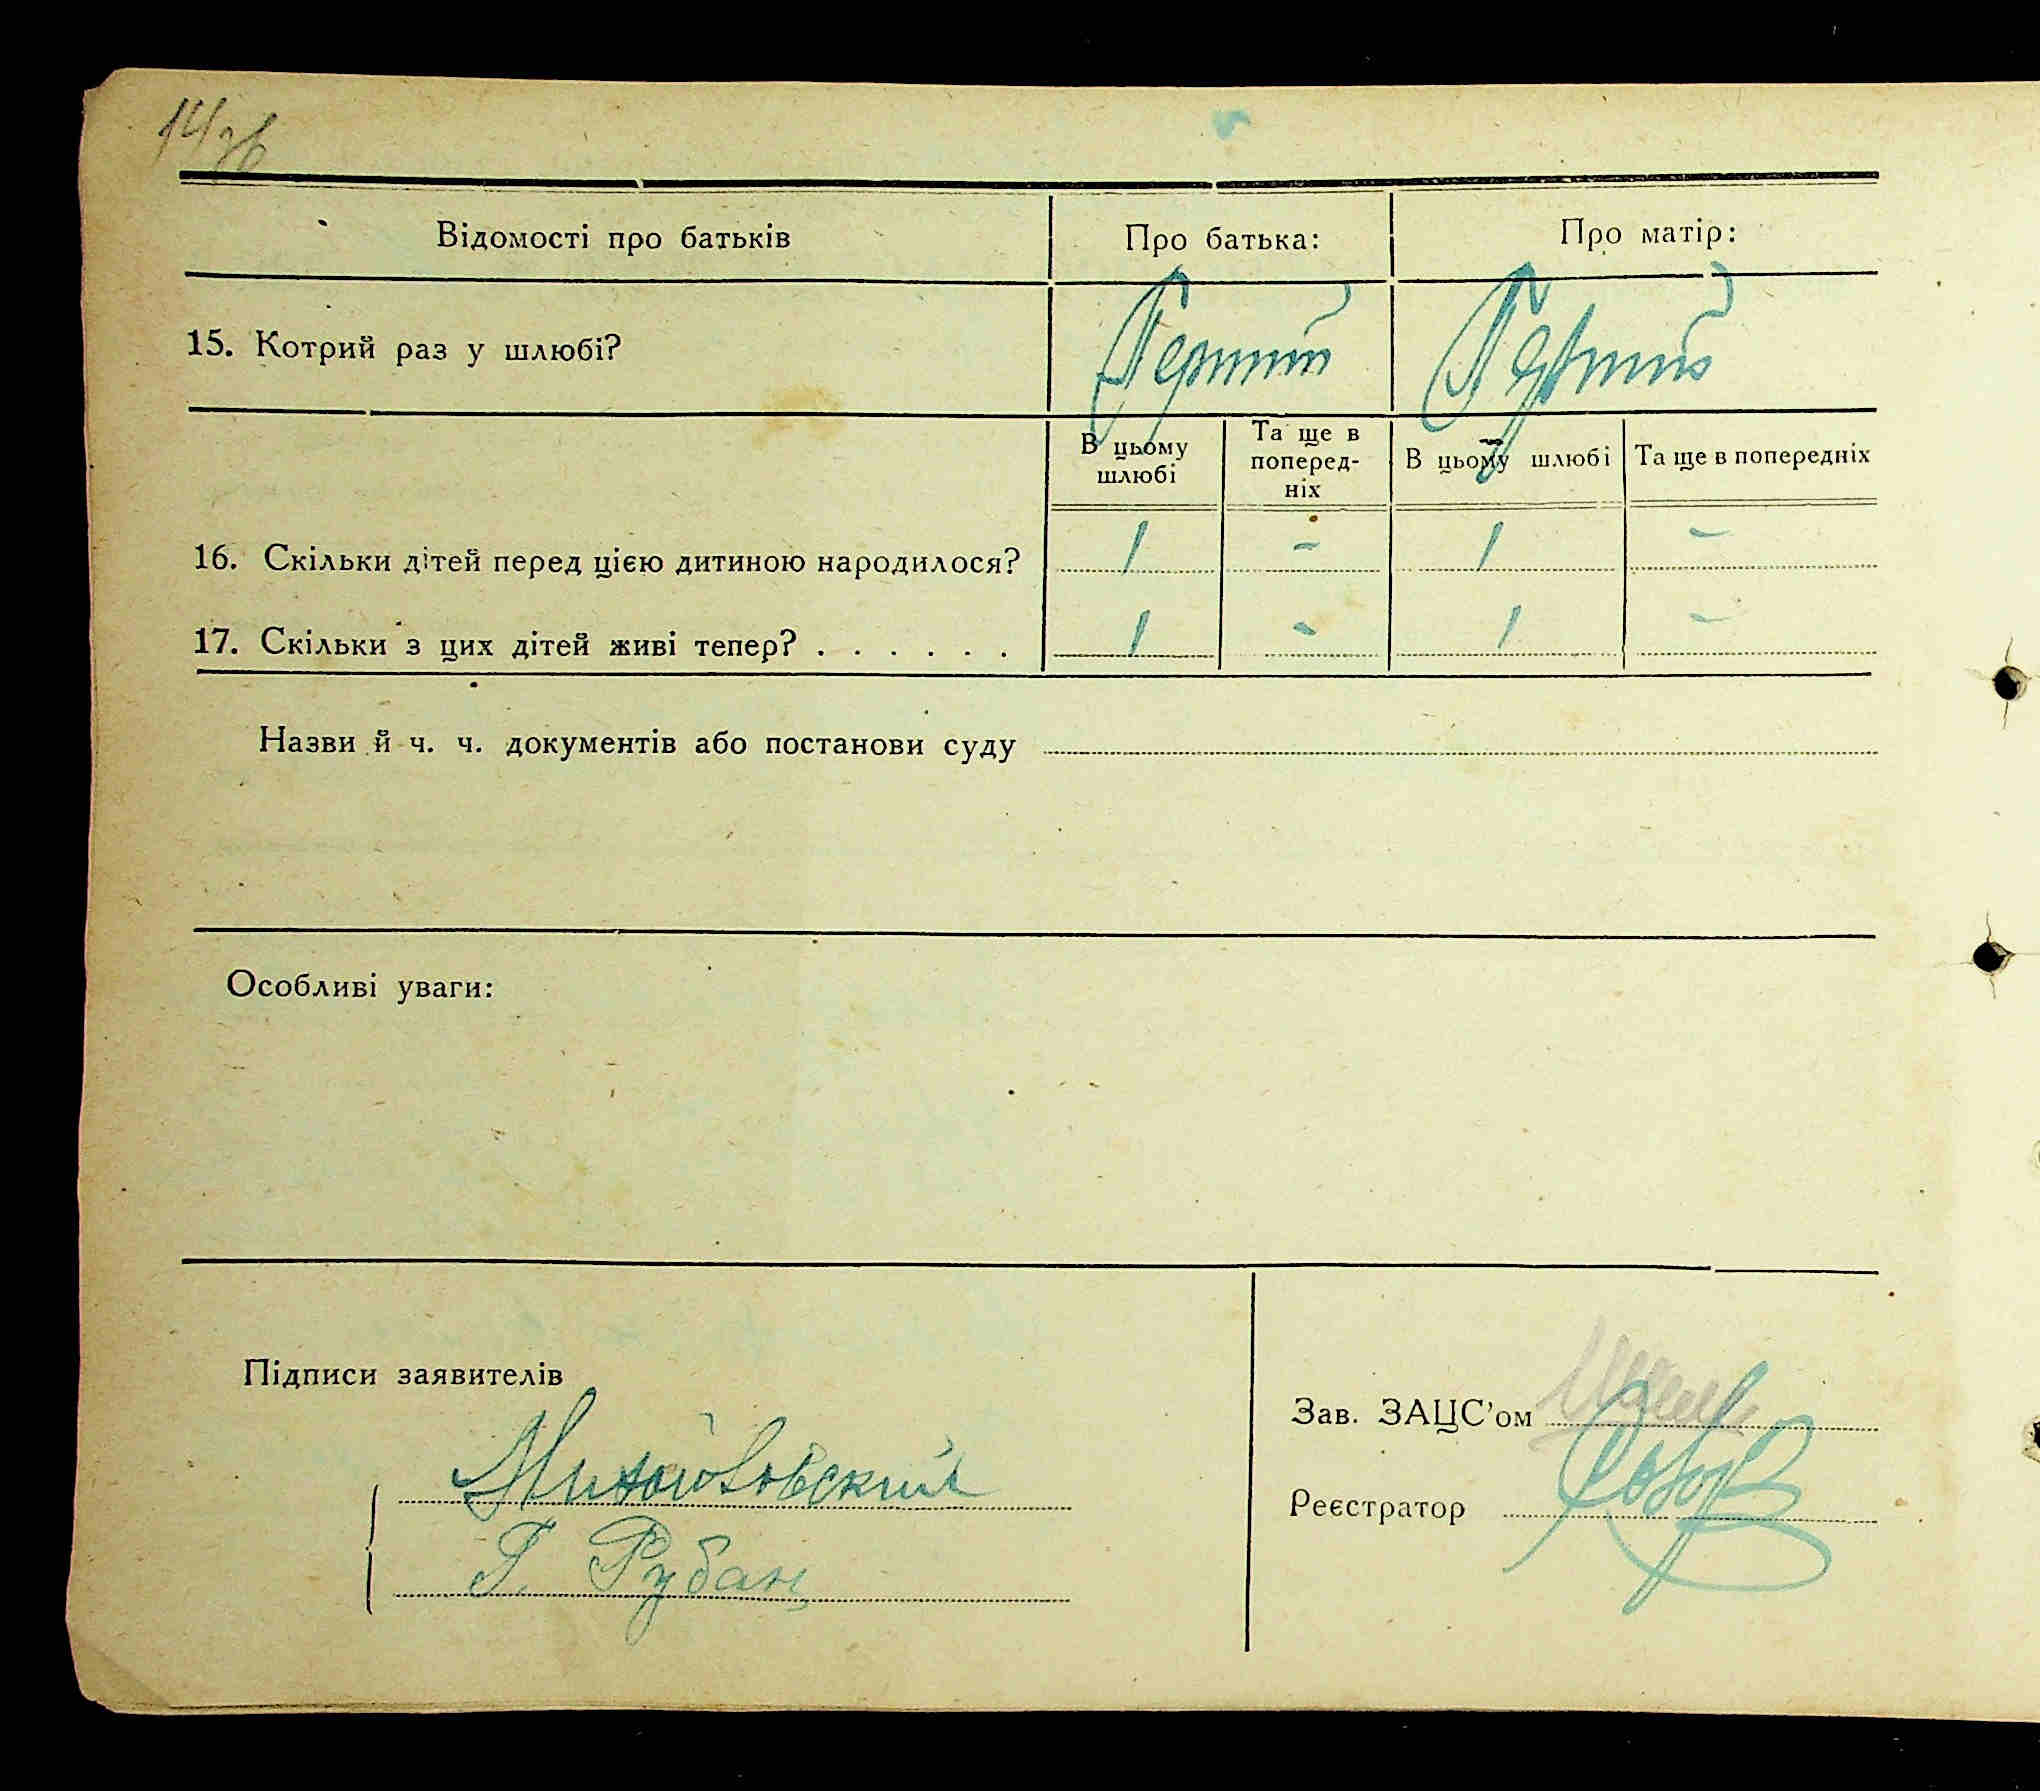 Відомості про батьків
Про батька:
Про матір:
15. Котрий раз у шлюбі?
Перший
Перший
В цьому шлюбі
Та ще в поперед-
ніх
В цьому шлюбі
Та ще в попередніх
16. Скільки дітей перед цією дитиною народилося?
1 - 1 -
17. Скільки з цих дітей живі тепер? . . . . . .
1 - 1 -
Назви й ч. ч. документів або постанови суду
Особливі уваги:
Підписи заявителів
Г. Рубан
Зав. ЗАЦС'ом
Реєстратор